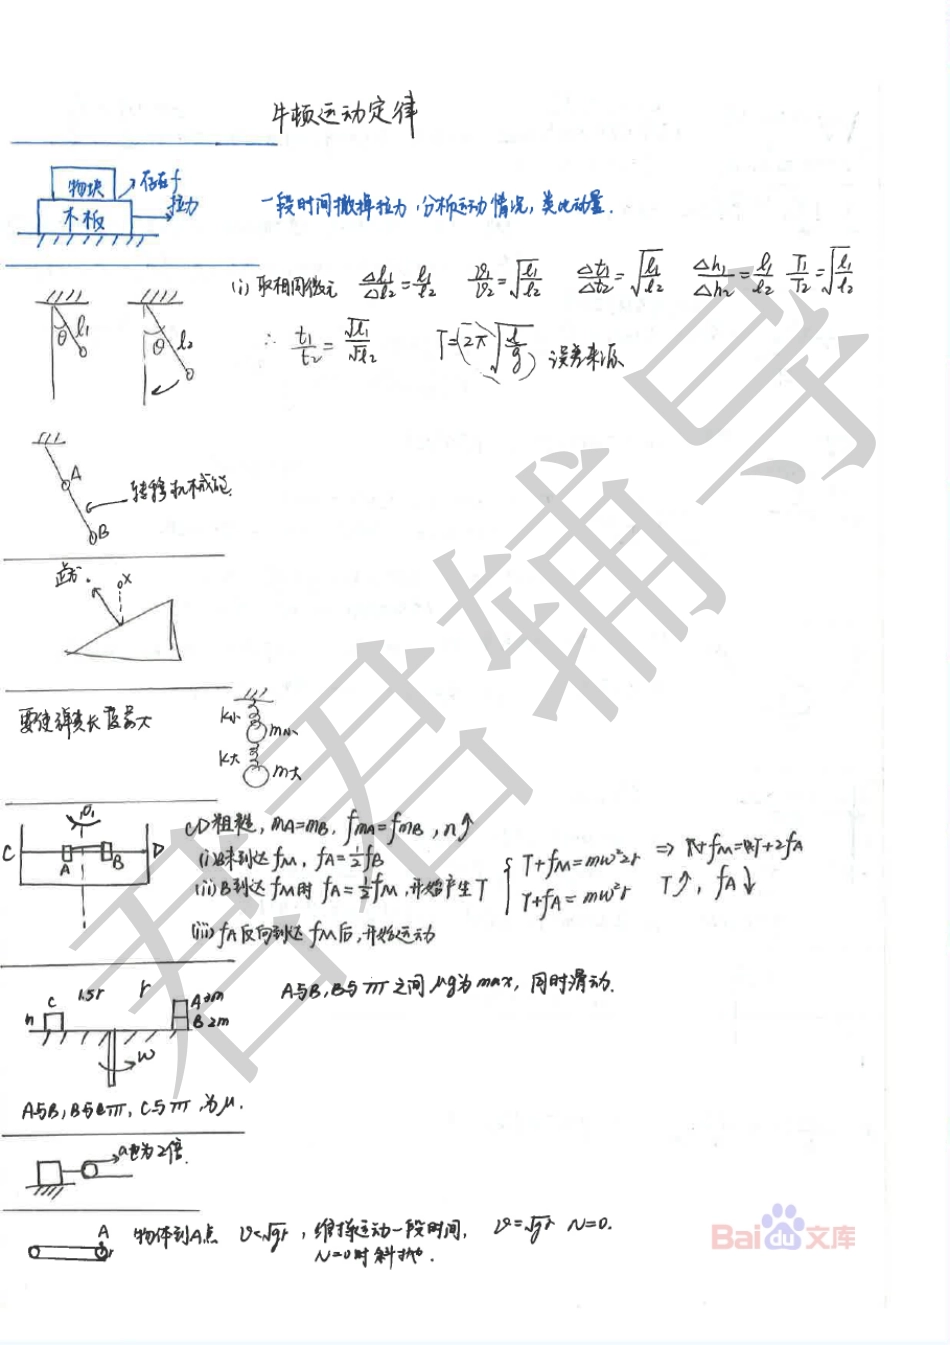 牛顿运动定律
物块
木板
存在f
拉力
一段时间撤掉拉力,分析运动情况,类比动量.
(i) 取相同微元 Δl1/Δl2=l1/l2 v1/v2=√(l1/l2) Δt1/Δt2=√(l1/l2) Δh1/Δh2=l1/l2 T1/T2=√(l1/l2)
θ l1
θ l2
∴ t1/t2=√l1/√l2 T=(2π√(l/g)) 误差来源
A
B
转移机械能.
X
要使弹簧长度最大
k小
m小
k大
m大
C A B D
CD粗糙,mA=mB,fmA=fmB,n↑
(i)B未到达fM,fA=½fB
(ii)B到达fM时 fA=½fM,开始产生T
{ T+fM=mω²2r
T+fA=mω²r
T↑,fA↓
(iii) fA反向到达fM后,开始运动
C 1.5r r
m
A 3m
B 2m
ω
A与B,B与 之间μg为max,同时滑动.
A与B,B与 ,C与 ,为μ.
a也为2倍.
A
r
物体到A点 v<√gr,维持运动一段时间, v=√gr N=0.
N=0时斜抛.
君君辅导
Bai du 文库